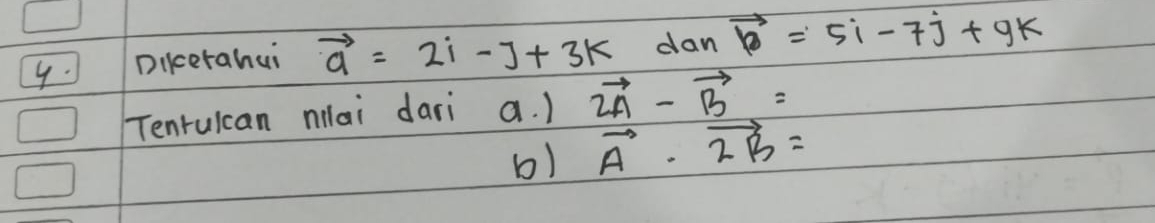 4. Diketahui a⃗ = 2i - j + 3k dan b⃗ = 5i - 7j + 9k
Tentukan nilai dari a.) 2A⃗ - B⃗ =
b) A⃗ . 2B⃗ =